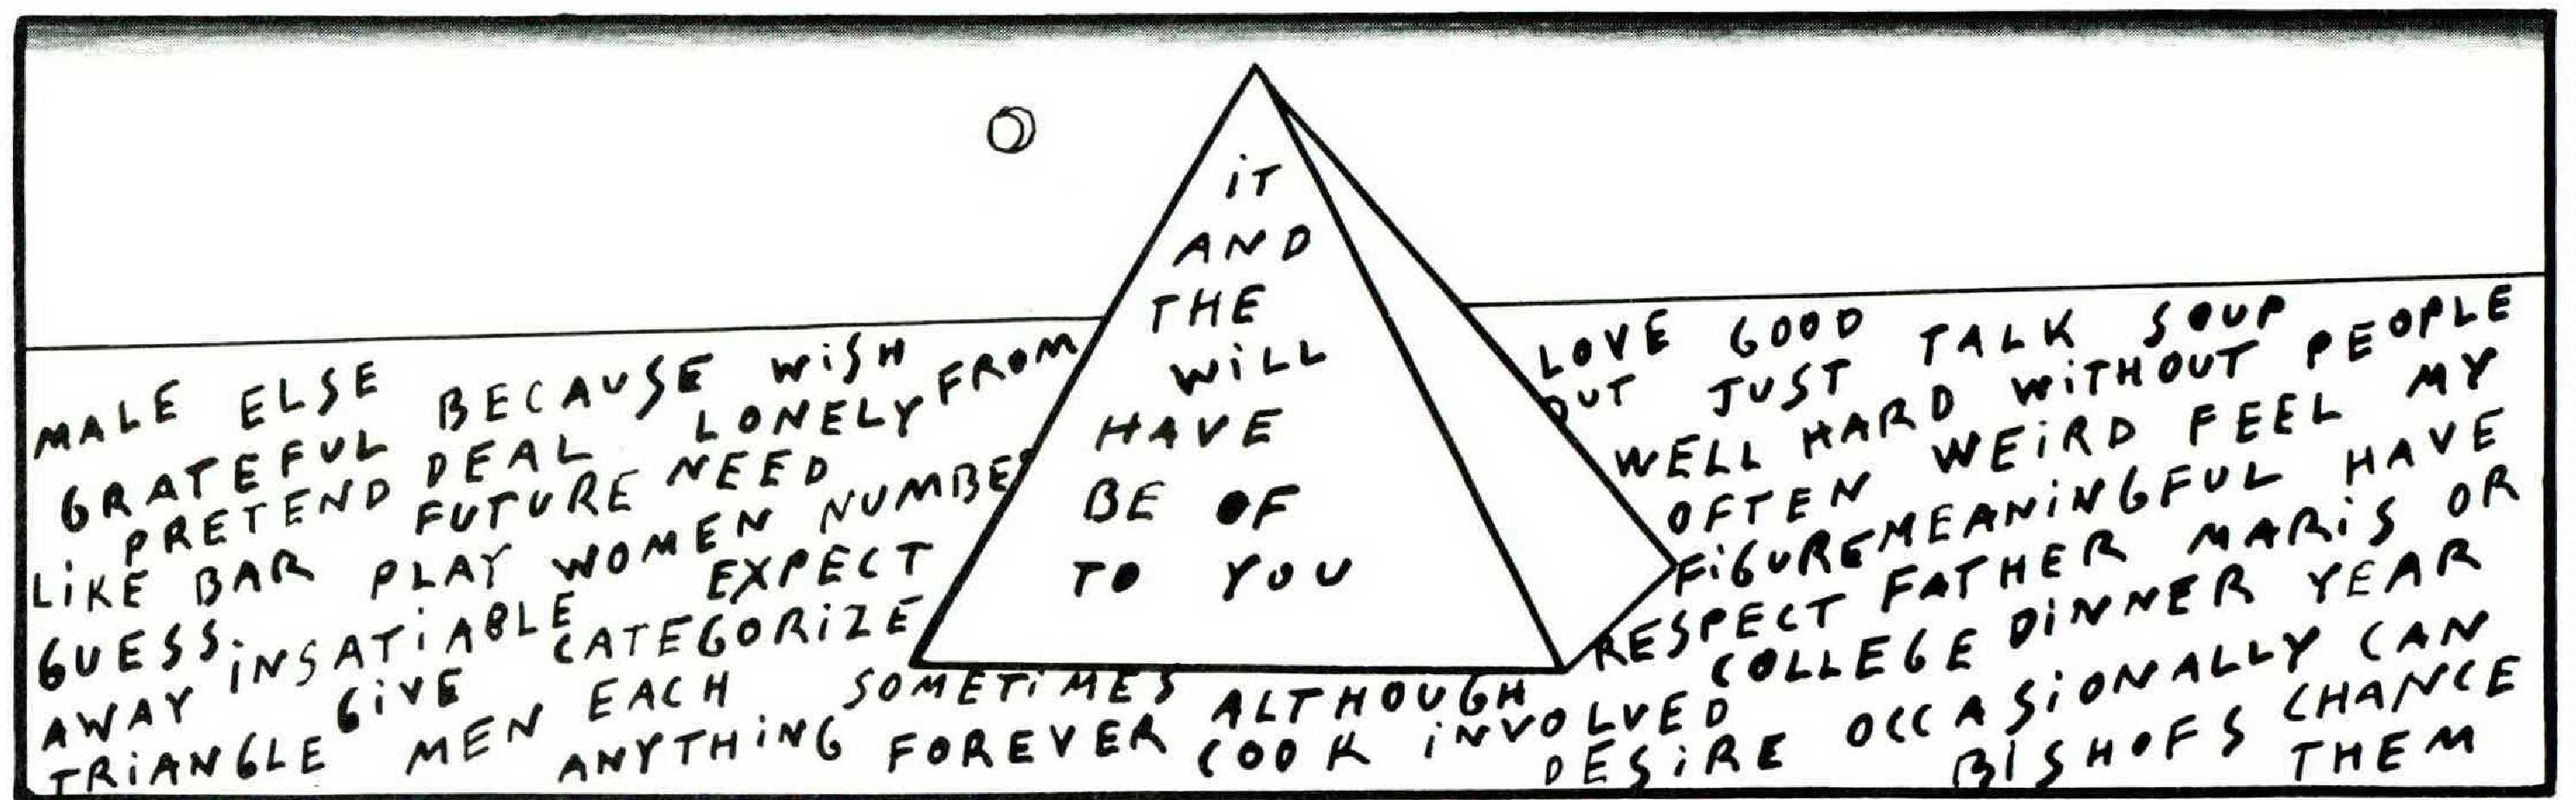 iT
AND
THE
WiLL
HAVE
BE OF
TO YOU
MALE ELSE BECAUSE WiSH FROM
GRATEFUL DEAL LONELY
PRETEND FUTURE NEED
LiKE BAR PLAY WOMEN NUMBE
GUESS iNSATiABLE EXPECT
AWAY GiVE CATEGORiZE
TRiANGLE MEN EACH SOMETiMES ALTHOUGH
ANYTHiNG FOREVER COOK iNVOLVED
LOVE GOOD TALK SOUP
OUT JUST WiTHOUT PEOPLE
WELL HARD WEiRD FEEL MY
OFTEN MEANiNGFUL HAVE
FiGURE FATHER MARiS OR
RESPECT COLLEGE DiNNER YEAR
DESiRE OCCASiONALLY CAN
BISHOFS CHANCE
THEM